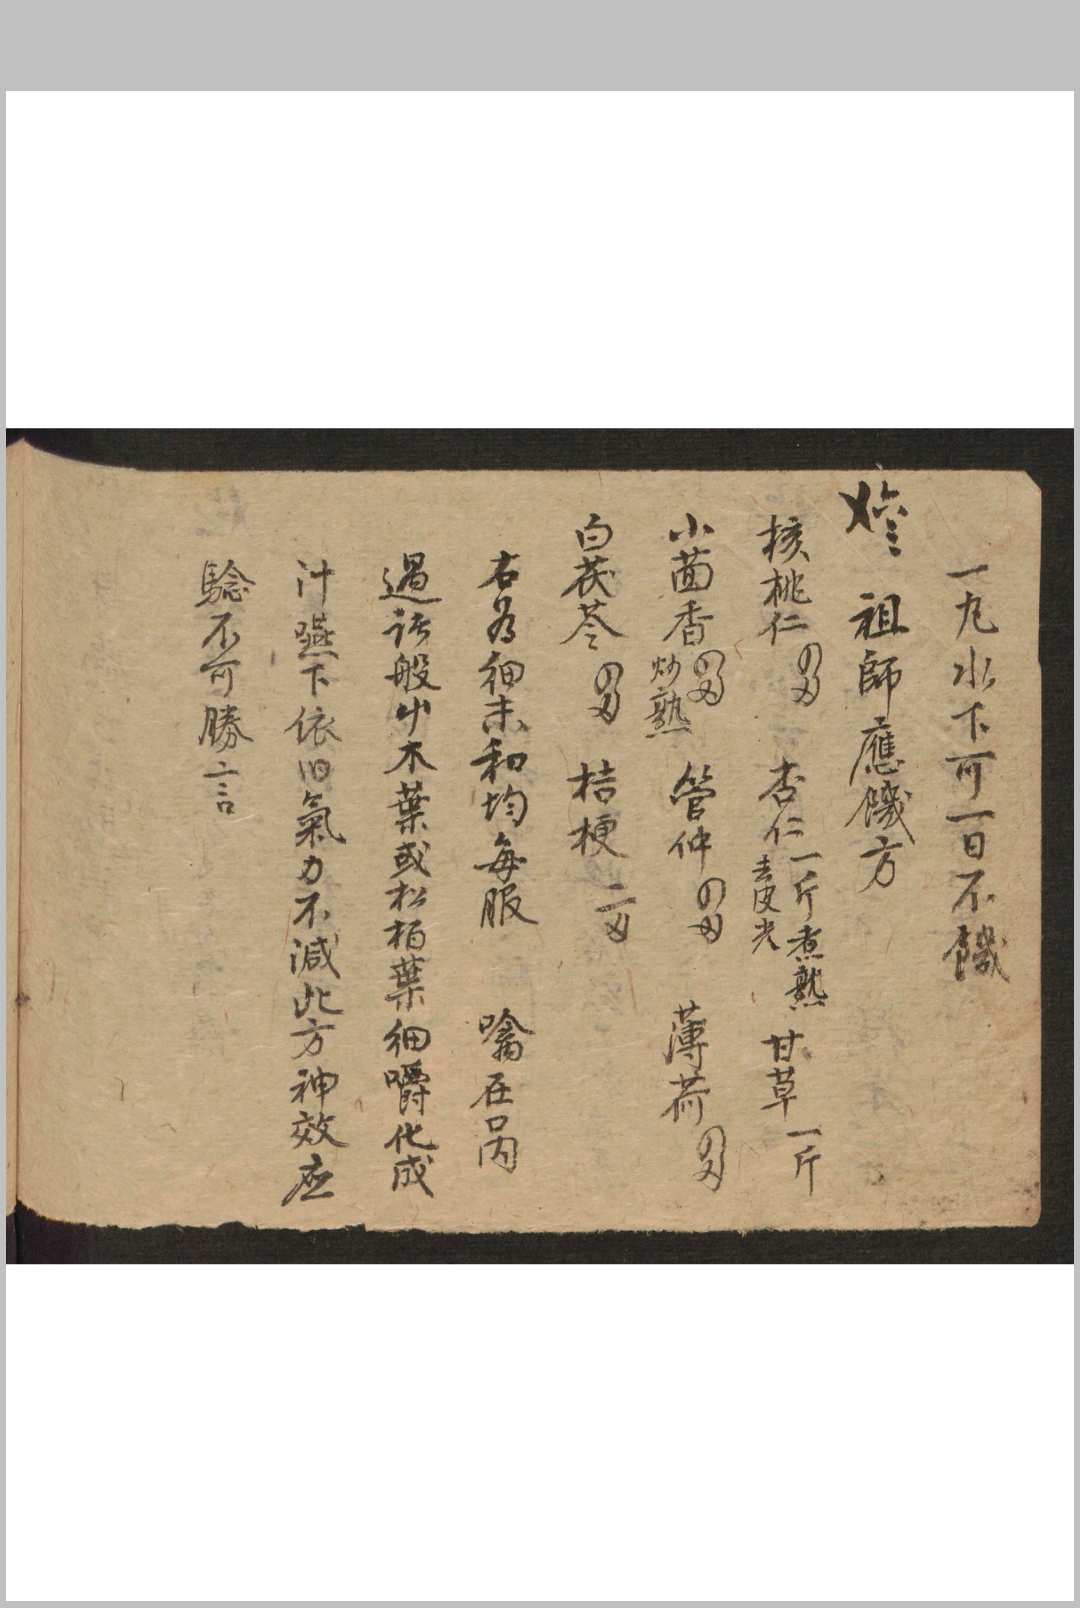 一丸水下可一日不饑
祖師應饑方
核桃仁 四兩 杏仁 一斤煮熟 去皮尖 甘草 一斤
小茴香 四兩 炒熟 管仲 四兩 薄荷 四兩
白茯苓 四兩 桔梗 二兩
右為細末和均每服 噙在口內
遇諸般草木葉或松柏葉細嚼化成
汁嚥下依旧氣力不減此方神效应
騐不可勝言